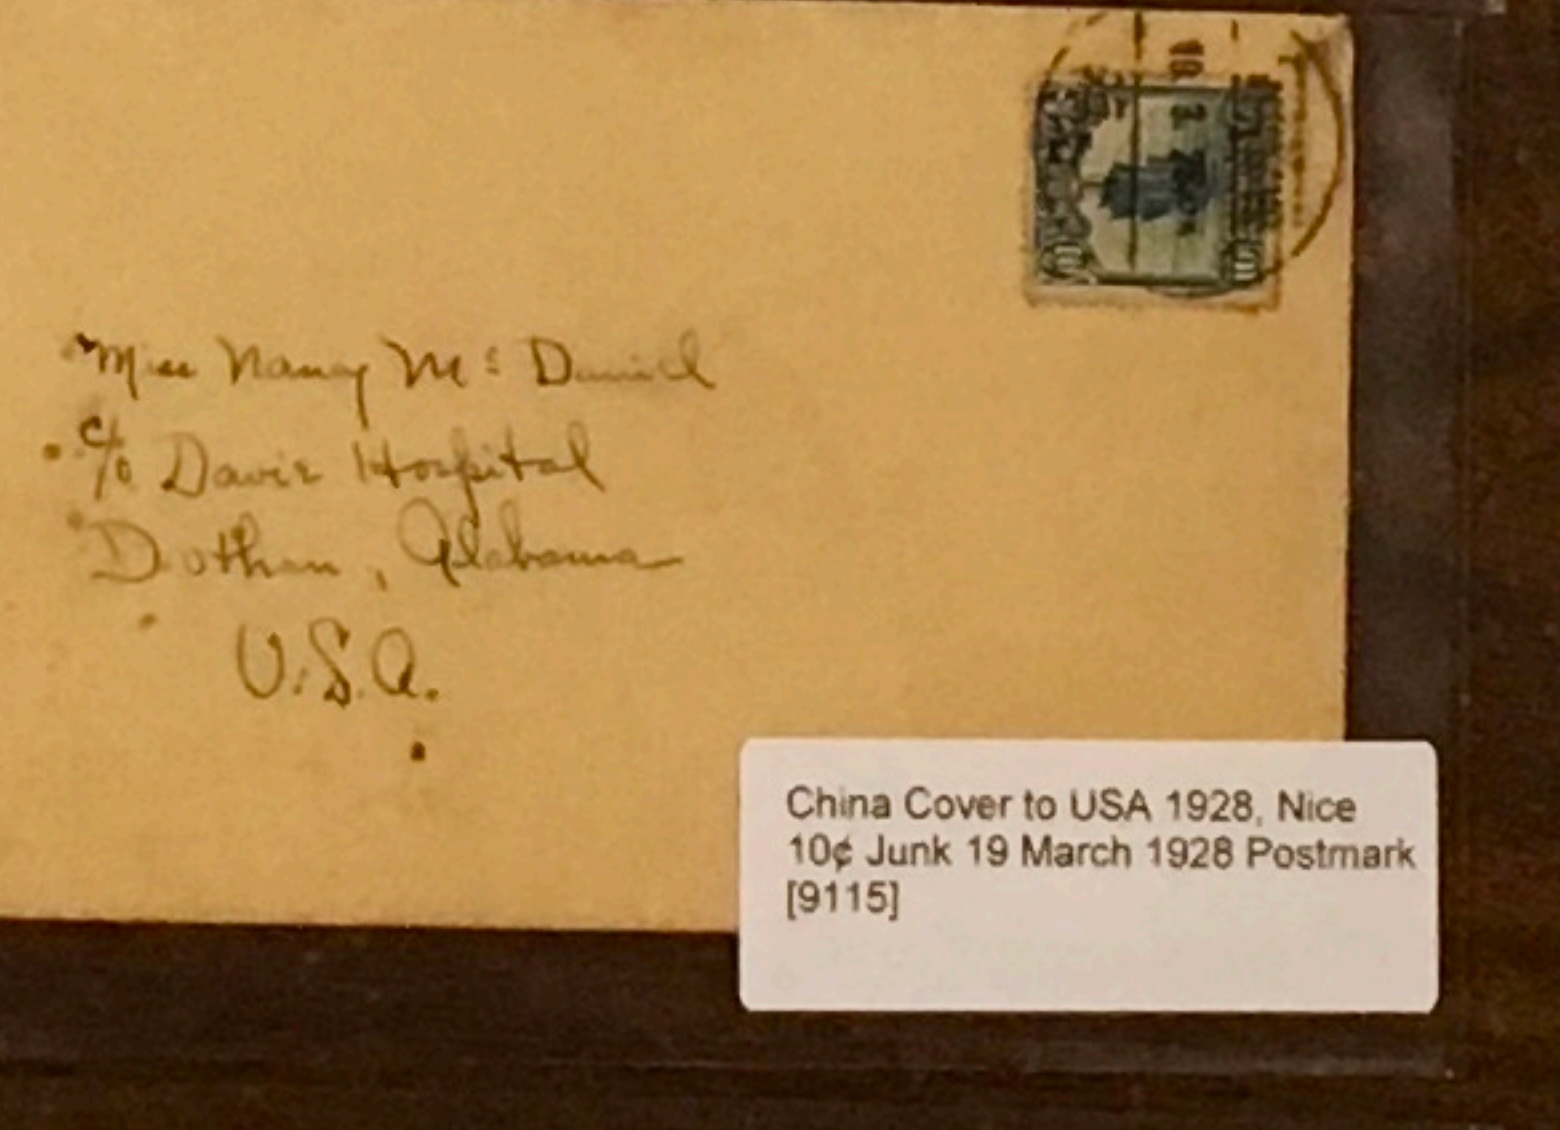 Miss Nancy Mc Daniel
c/o Davis Hospital
Dothan, Alabama
U.S.A.
China Cover to USA 1928, Nice
10¢ Junk 19 March 1928 Postmark
[9115]